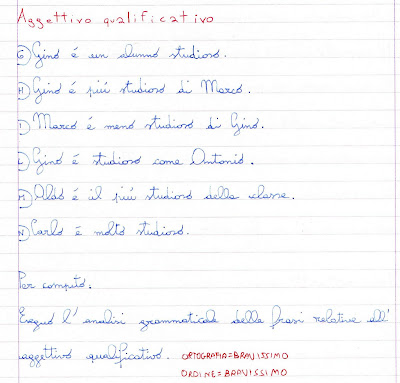 Aggettivo qualificativo
G) Gino é un alunno studioso.
H) Gino é piú studioso di Marco.
I) Marco é meno studioso di Gino.
L) Gino é studioso come Antonio.
M) Aldo é il piú studioso della classe.
N) Carlo é molto studioso.
Per compito.
Eseguo l'analisi grammaticale delle frasi relative all'
aggettivo qualificativo. ORTOGRAFIA=BRAVISSIMO
ORDINE=BRAVISSIMO